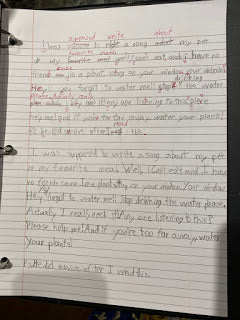 supposed write about
I was to a song about my pet
favorite meals
or my favorite meal. Well, I eat, and I have no
friend I'm a plant, sitting on your window. Your window
drinking
Hey, you forgot to water me! Stop the water
please. Actually, I
any one listening to this? please
help me! And if you're too far away, water your plants!
read
PS. he did survive after I this.
I was supposed to write a song about my pet
or my favourite meal. Well, I can't eat and I have
no friends cause I'm a plant sitting on your window. Your window
Hey! You
forgot to water me! Stop drinking the water please.
Actually I really need it! Any one listening to this?
Please help me! And if you're too far away, water
your plants!
P.s He did survive after I read this.